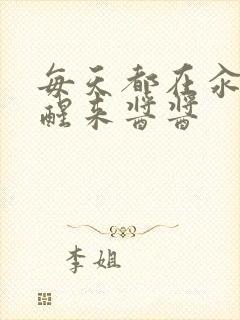 每天都在汆
醒来酱酱
李姐